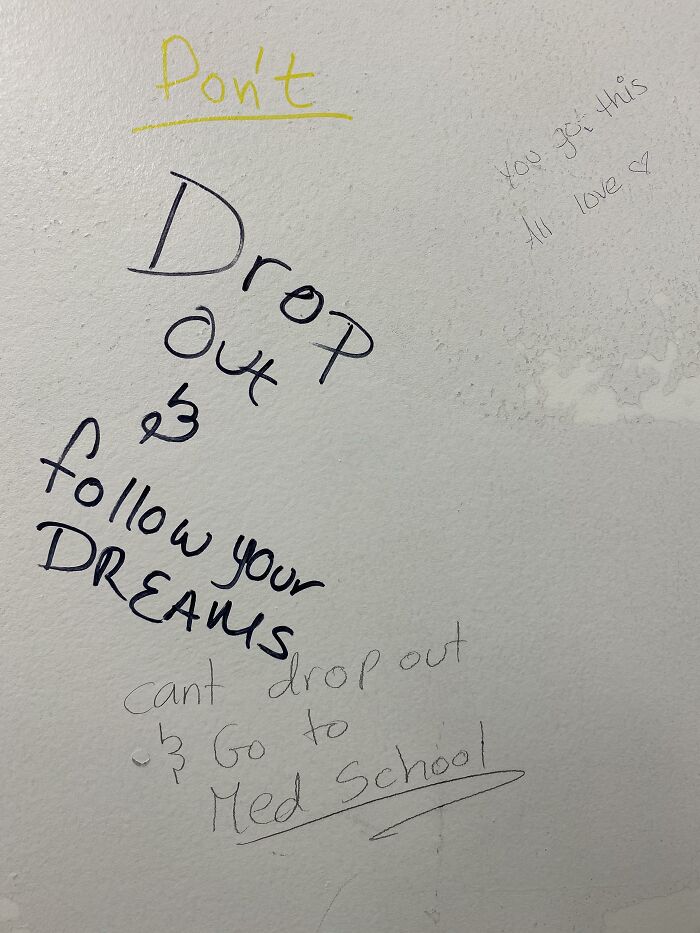 Don't
Drop
Out
&
follow your
DREAMS
cant drop out
& Go to
Med School
You got this
All love ♡